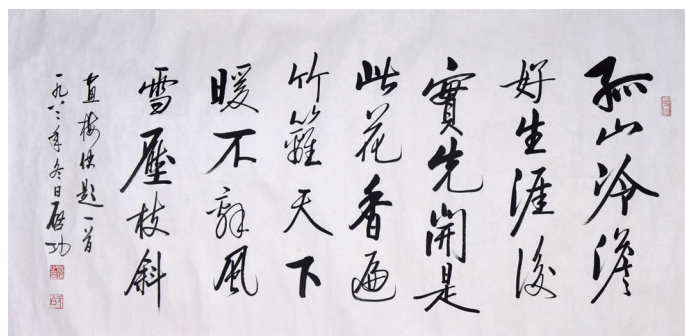 孤山冷澹
好生涯後
實先開是
此花香遍
竹籬天下
暖不辞風
雪壓枝斜
直梅快題一首
一九八二年冬日启功